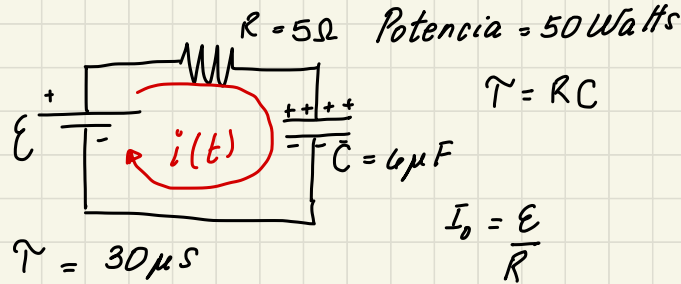 R = 5Ω Potencia = 50 Watts
τ = RC
+
ℰ
-
i(t)
++++
- - -
C = 6μF
I₀ = ℰ/R
τ = 30μs